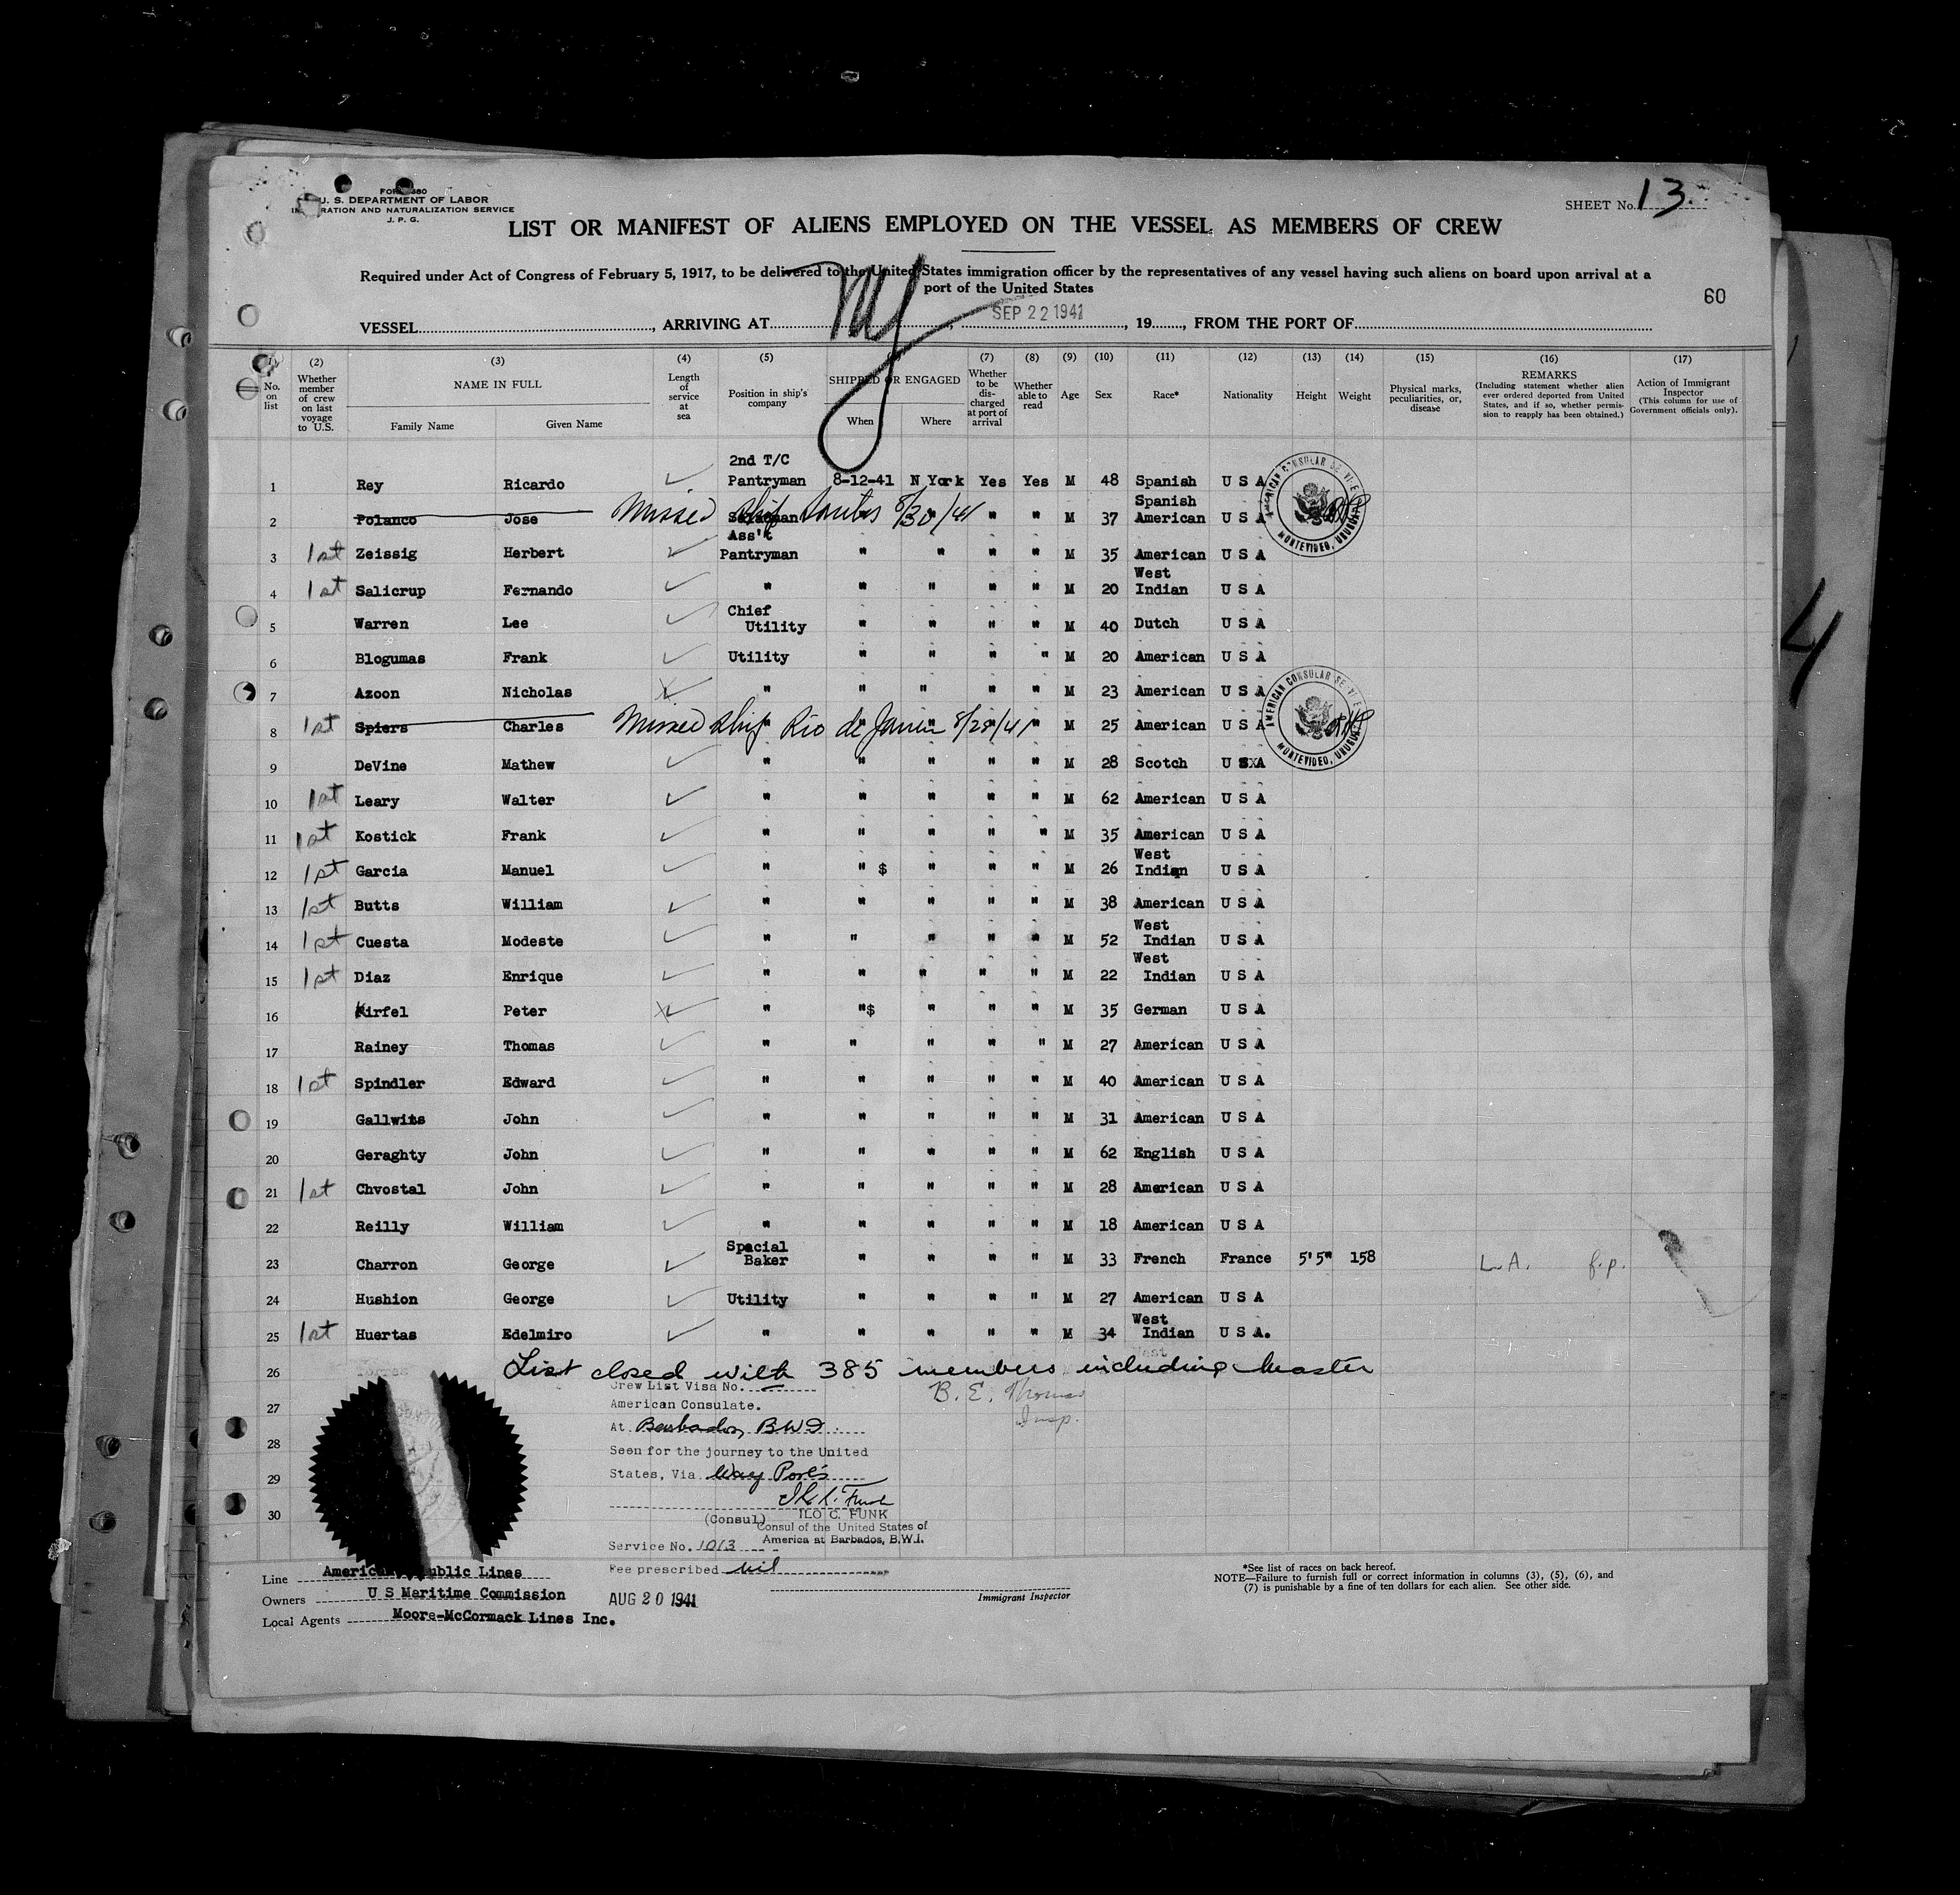 FORM 680
U. S. DEPARTMENT OF LABOR
IMMIGRATION AND NATURALIZATION SERVICE
J. P. G.
SHEET No. 13
LIST OR MANIFEST OF ALIENS EMPLOYED ON THE VESSEL AS MEMBERS OF CREW
Required under Act of Congress of February 5, 1917, to be delivered to the United States immigration officer by the representatives of any vessel having such aliens on board upon arrival at a
port of the United States
60
VESSEL, ARRIVING AT NY, SEP 22 1941, 19, FROM THE PORT OF
(1) (2) (3) (4) (5) (6) (7) (8) (9) (10) (11) (12) (13) (14) (15) (16) (17)
No. on list
Whether member of crew on last voyage to U.S.
NAME IN FULL
Family Name Given Name
Length of service at sea
Position in ship's company
SHIPPED OR ENGAGED
When Where
Whether to be discharged at port of arrival
Whether able to read
Age Sex Race* Nationality Height Weight
Physical marks, peculiarities, or, disease
REMARKS
(Including statement whether alien ever ordered deported from United States, and if so, whether permission to reapply has been obtained.)
Action of Immigrant Inspector
(This column for use of Government officials only).
1 Rey Ricardo 2nd T/C Pantryman 8-12-41 N York Yes Yes M 48 Spanish U S A
2 Polanco Jose Missed ship Santos 8/30/41 " " M 37 Spanish American U S A
3 1st Zeissig Herbert Ass't Pantryman " " " " M 35 American U S A
4 1st Salicrup Fernando " " " " " M 20 West Indian U S A
5 Warren Lee Chief Utility " " " " M 40 Dutch U S A
6 Blogumas Frank Utility " " " " M 20 American U S A
7 Azoon Nicholas " " " " " M 23 American U S A
8 1st Spiers Charles Missed ship Rio de Janeiro 8/28/41 " M 25 American U S A
9 DeVine Mathew " " " " " M 28 Scotch U S A
10 1st Leary Walter " " " " " M 62 American U S A
11 1st Kostick Frank " " " " " M 35 American U S A
12 1st Garcia Manuel " " $ " " " M 26 West Indian U S A
13 1st Butts William " " " " " M 38 American U S A
14 1st Cuesta Modeste " " " " " M 52 West Indian U S A
15 1st Diaz Enrique " " " " " M 22 West Indian U S A
16 Kirfel Peter " "$ " " " M 35 German U S A
17 Rainey Thomas " " " " " M 27 American U S A
18 1st Spindler Edward " " " " " M 40 American U S A
19 Gallwits John " " " " " M 31 American U S A
20 Geraghty John " " " " " M 62 English U S A
21 1st Chvostal John " " " " " M 28 American U S A
22 Reilly William " " " " " M 18 American U S A
23 Charron George Special Baker " " " " M 33 French France 5'5" 158 L.A. f.p.
24 Hushion George Utility " " " " M 27 American U S A
25 1st Huertas Edelmiro " " " " " M 34 West Indian U S A.
26 List closed with 385 members including Master
B. E. Thomas
Insp.
27
28
29
30
Crew List Visa No.
American Consulate.
At Barbados, BWI
Seen for the journey to the United
States, Via Way Ports
(Consul) ILO C. FUNK
Consul of the United States of
America at Barbados, B.W.I.
Service No. 1013
Fee prescribed nil
AUG 20 1941
AMERICAN CONSULAR SERVICE MONTEVIDEO, URUGUAY
AMERICAN CONSULAR SERVICE MONTEVIDEO, URUGUAY
Line American Republic Lines
Owners U S Maritime Commission
Local Agents Moore-McCormack Lines Inc.
Immigrant Inspector
*See list of races on back hereof.
NOTE—Failure to furnish full or correct information in columns (3), (5), (6), and
(7) is punishable by a fine of ten dollars for each alien. See other side.
4